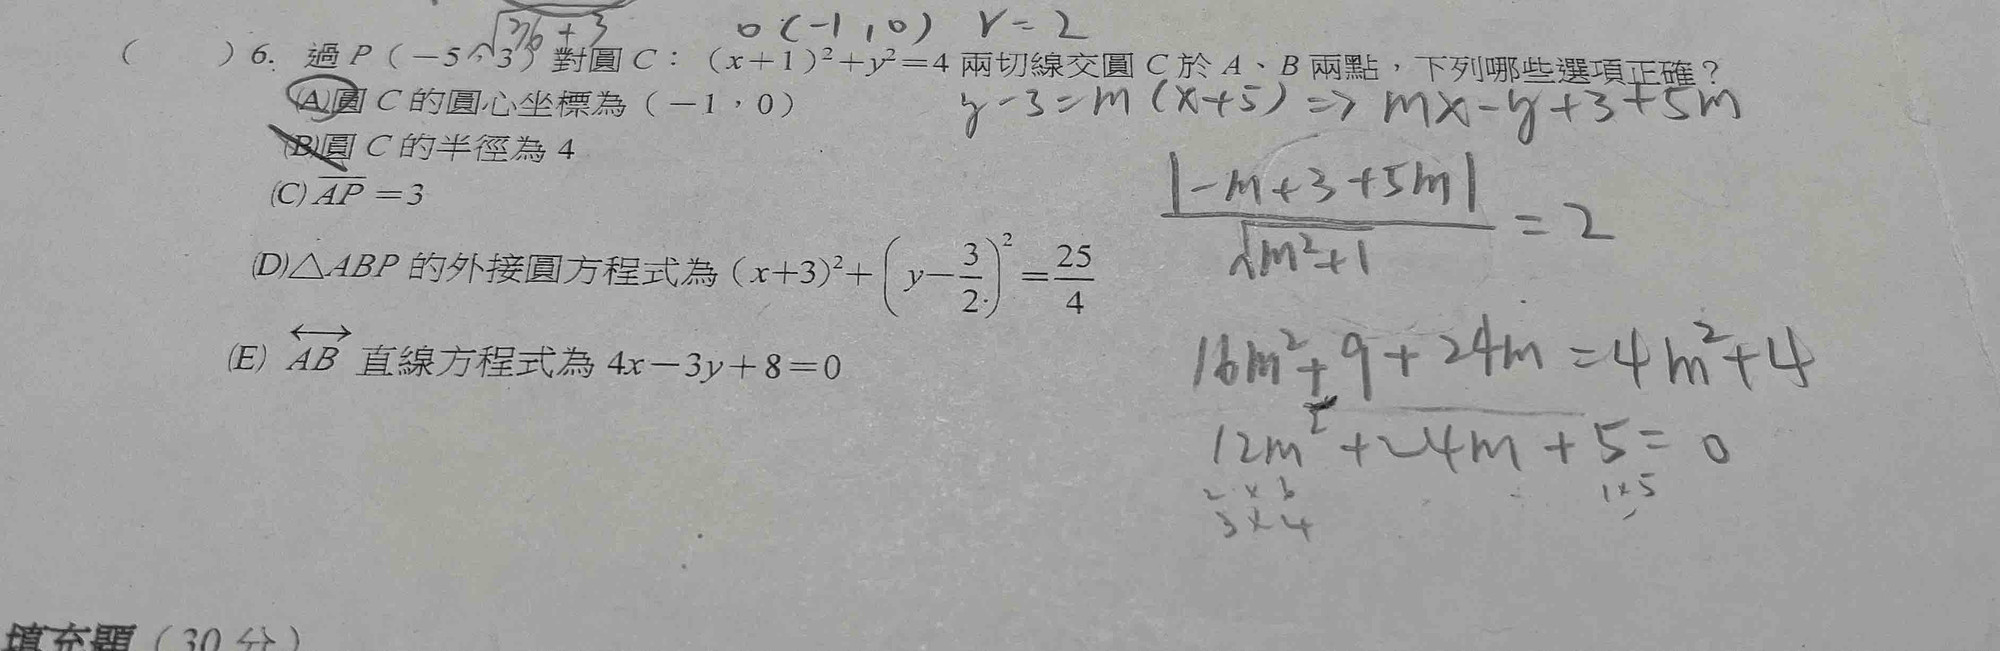 √36+3  O(-1,0)  r=2
(  )6. 過 P(-5,3)對圓 C:(x+1)²+y²=4 兩切線交圓 C 於 A、B 兩點,下列哪些選項正確?
(A)圓 C 的圓心坐標為(-1,0)
y-3=m(x+5)=>mx-y+3+5m
(B)圓 C 的半徑為 4
(C) AP=3
|-m+3+5m|/√m²+1 = 2
(D)△ABP 的外接圓方程式為(x+3)²+(y-3/2)²=25/4
(E) AB 直線方程式為 4x-3y+8=0
16m²+9+24m=4m²+4
12m²+24m+5=0
2×6  1×5
3×4
填充題(30 分)